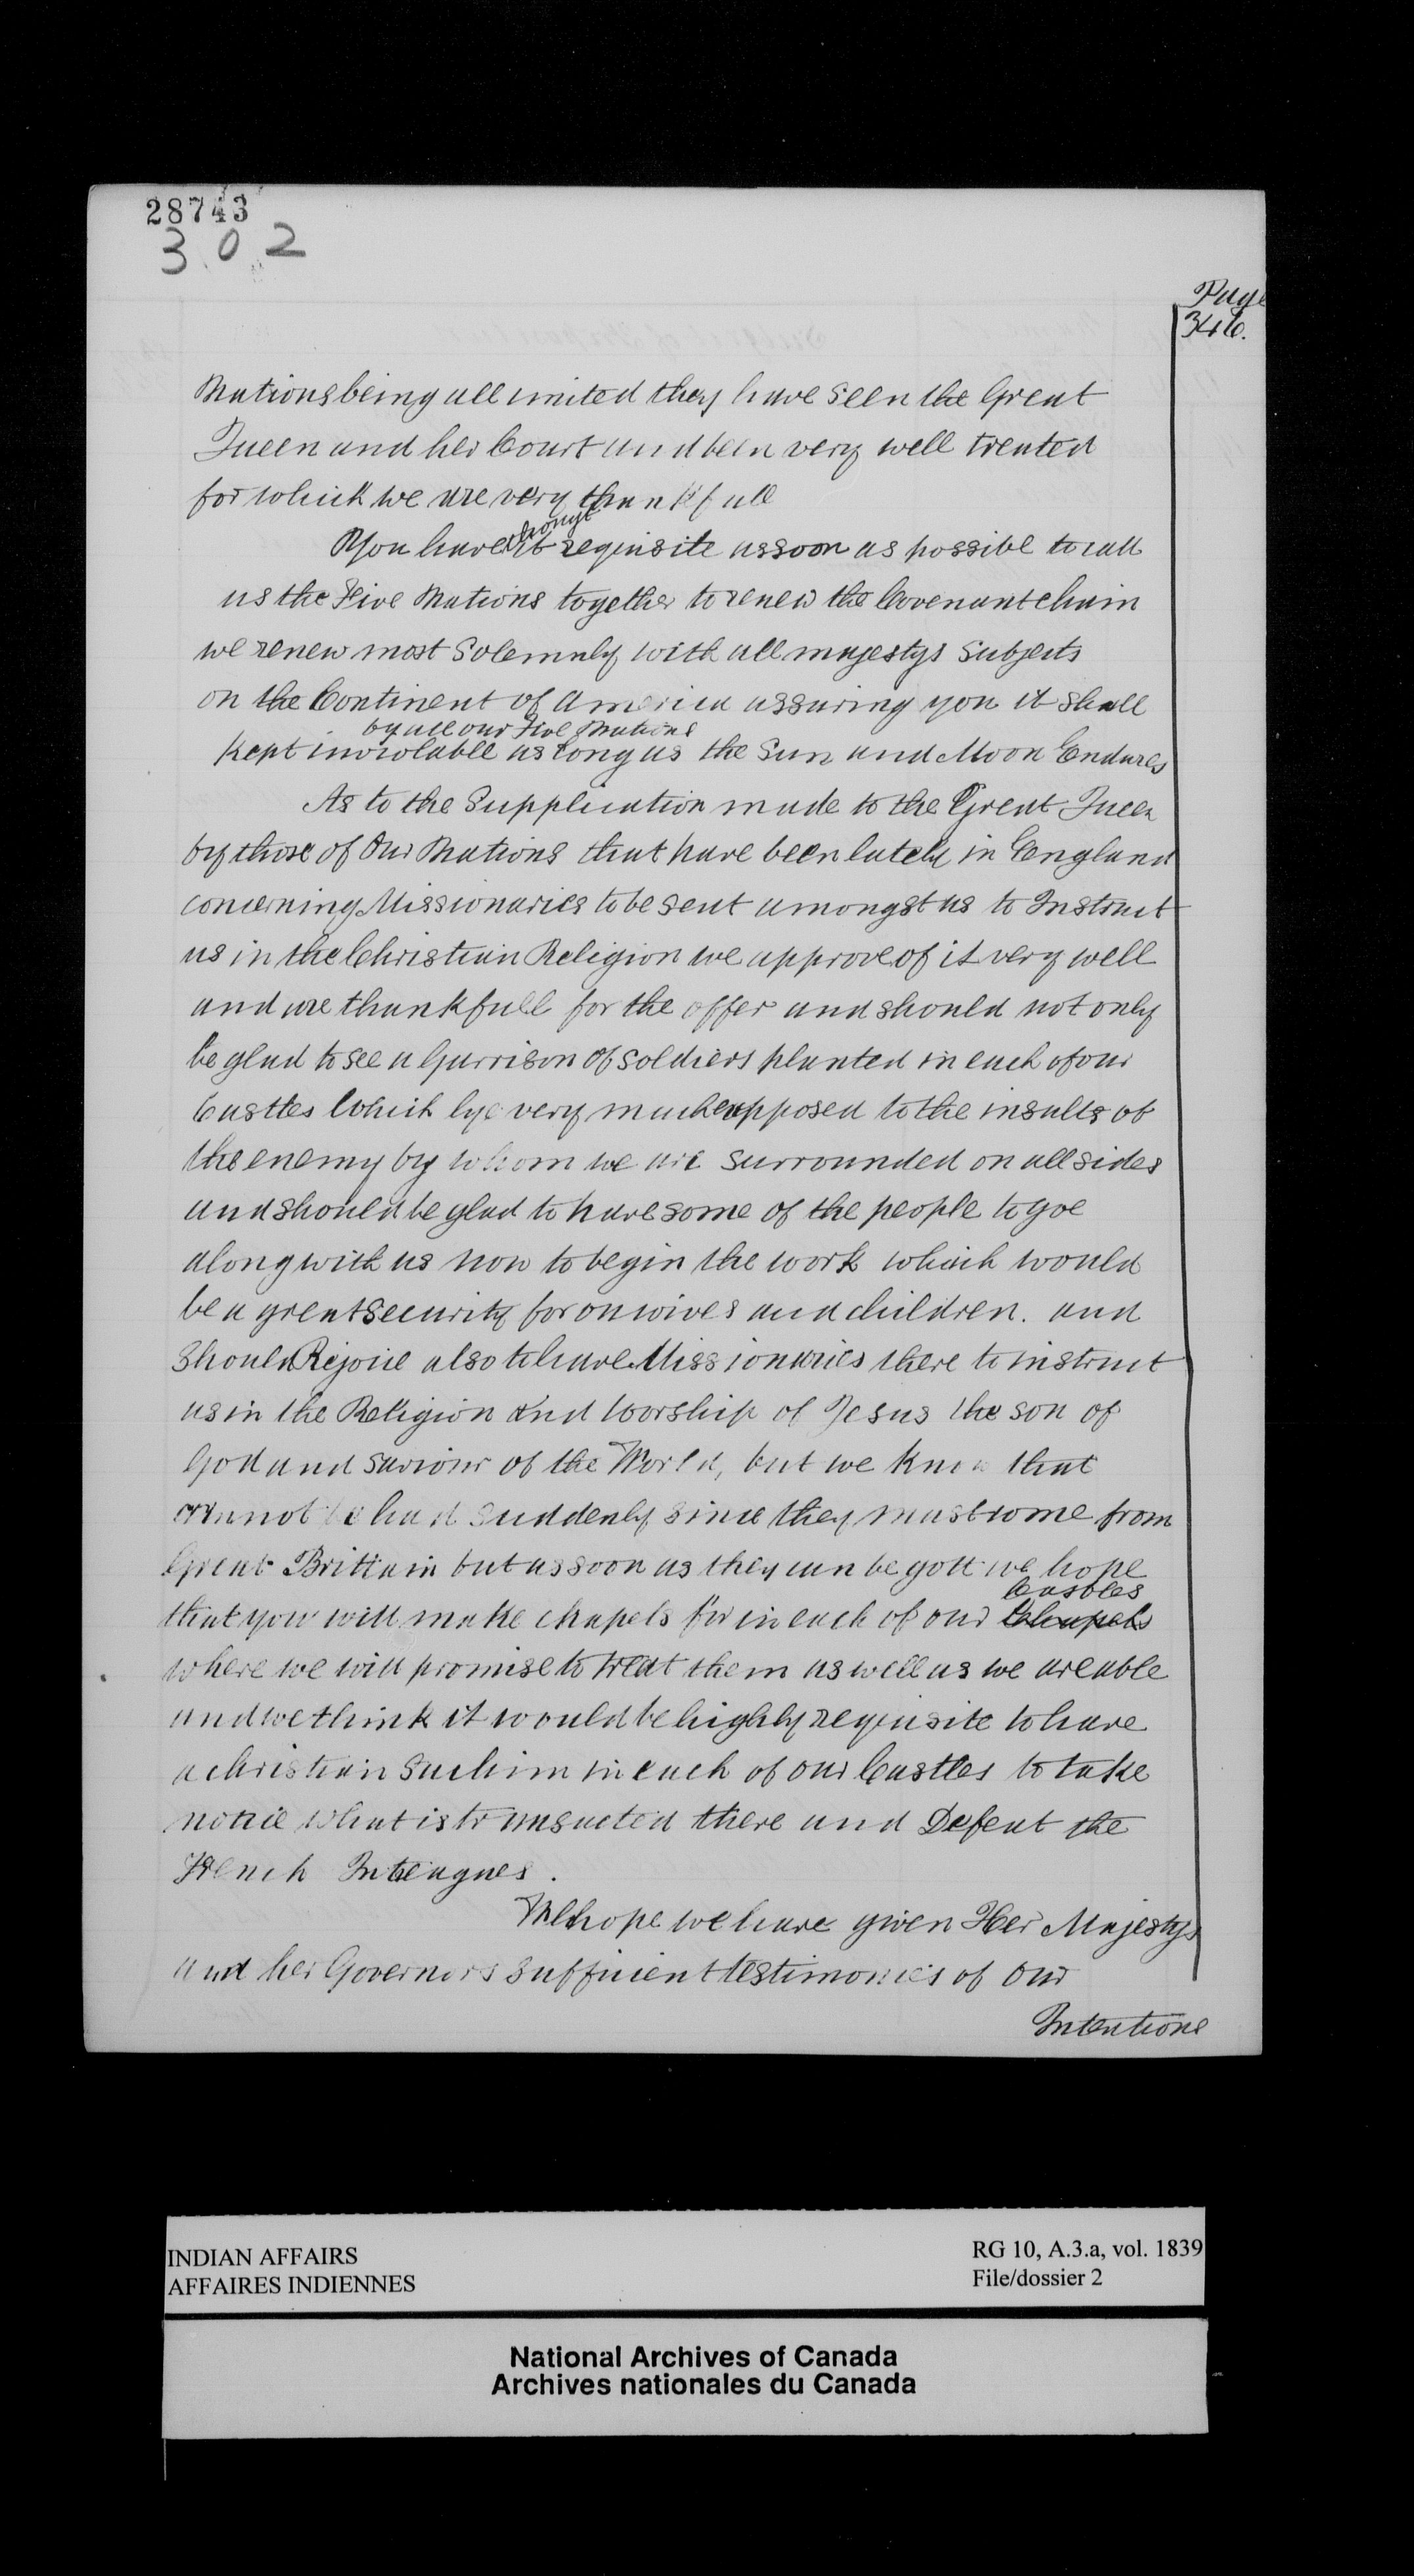 28743
302
Page
346.
Nations being all united they have seen the Great
Queen and her Court and been very well treated
for which we are very thankfull
thought
You have it requisite assoon as possible to call
us the Five Nations together to renew the Covenant chain
we renew most Solemnly with all majestys Subjects
on the Continent of America assuring you it shall
by all our Five Nations
kept inviolable as long as the Sun and Moon Endures
As to the Supplication made to the Great Queen
by those of Our Nations that have been lately in England
concerning Missionaries to be sent amongst us to Instruct
us in the Christian Religion we approve of it very well
and are thankfull for the offer and should not only
be glad to see a Garrison of soldiers planted in each of our
Castles which lye very much exposed to the insults of
the enemy by whom we are surrounded on all sides
and should be glad to have some of the people to goe
along with us now to begin the work which would
be a great security for our wives and children. and
Should Rejoice also to have Missionaries there to instruct
us in the Religion and worship of Jesus the son of
God and saviour of the World, but we know that
cannot be had suddenly since they must come from
Great Brittain but assoon as they can be gott we hope
Castles
that you will make chapels for in each of our Chapels
where we will promise to treat them as well as we are able
and we think it would be highly requisite to have
a christian Sachim in each of our Castles to take
notice what is transacted there and Defeat the
French Intreagues.
We hope we have given Her Majestys
and her Governors sufficient testimonies of our
Intentions
INDIAN AFFAIRS
AFFAIRES INDIENNES
RG 10, A.3.a, vol. 1839
File/dossier 2
National Archives of Canada
Archives nationales du Canada